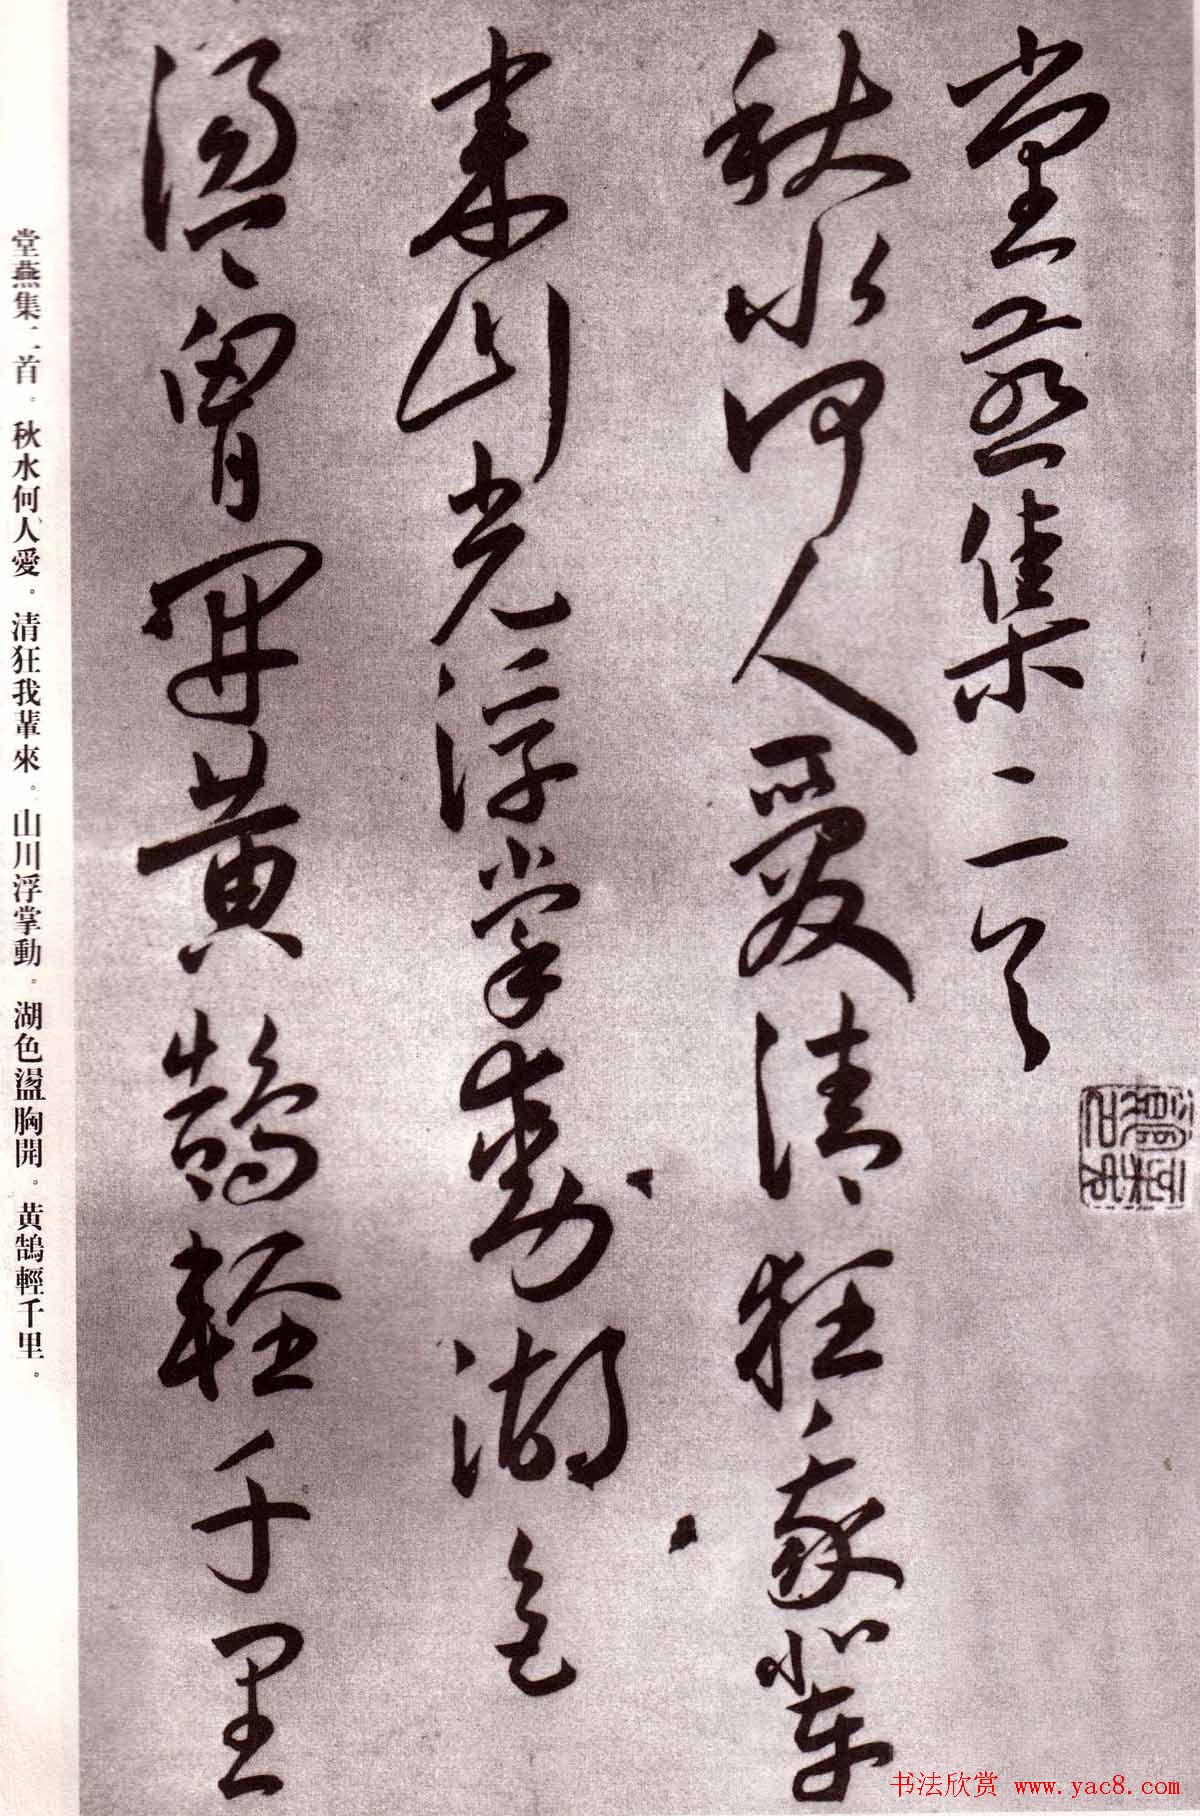 堂燕集二首
秋水何人愛清狂我輩
來山光浮掌動湖色
盪胷開黃鵠輕千里
堂燕集二首。秋水何人愛。清狂我輩來。山川浮掌動。湖色盪胸開。黃鵠輕千里。
书法欣赏 www.yac8.com